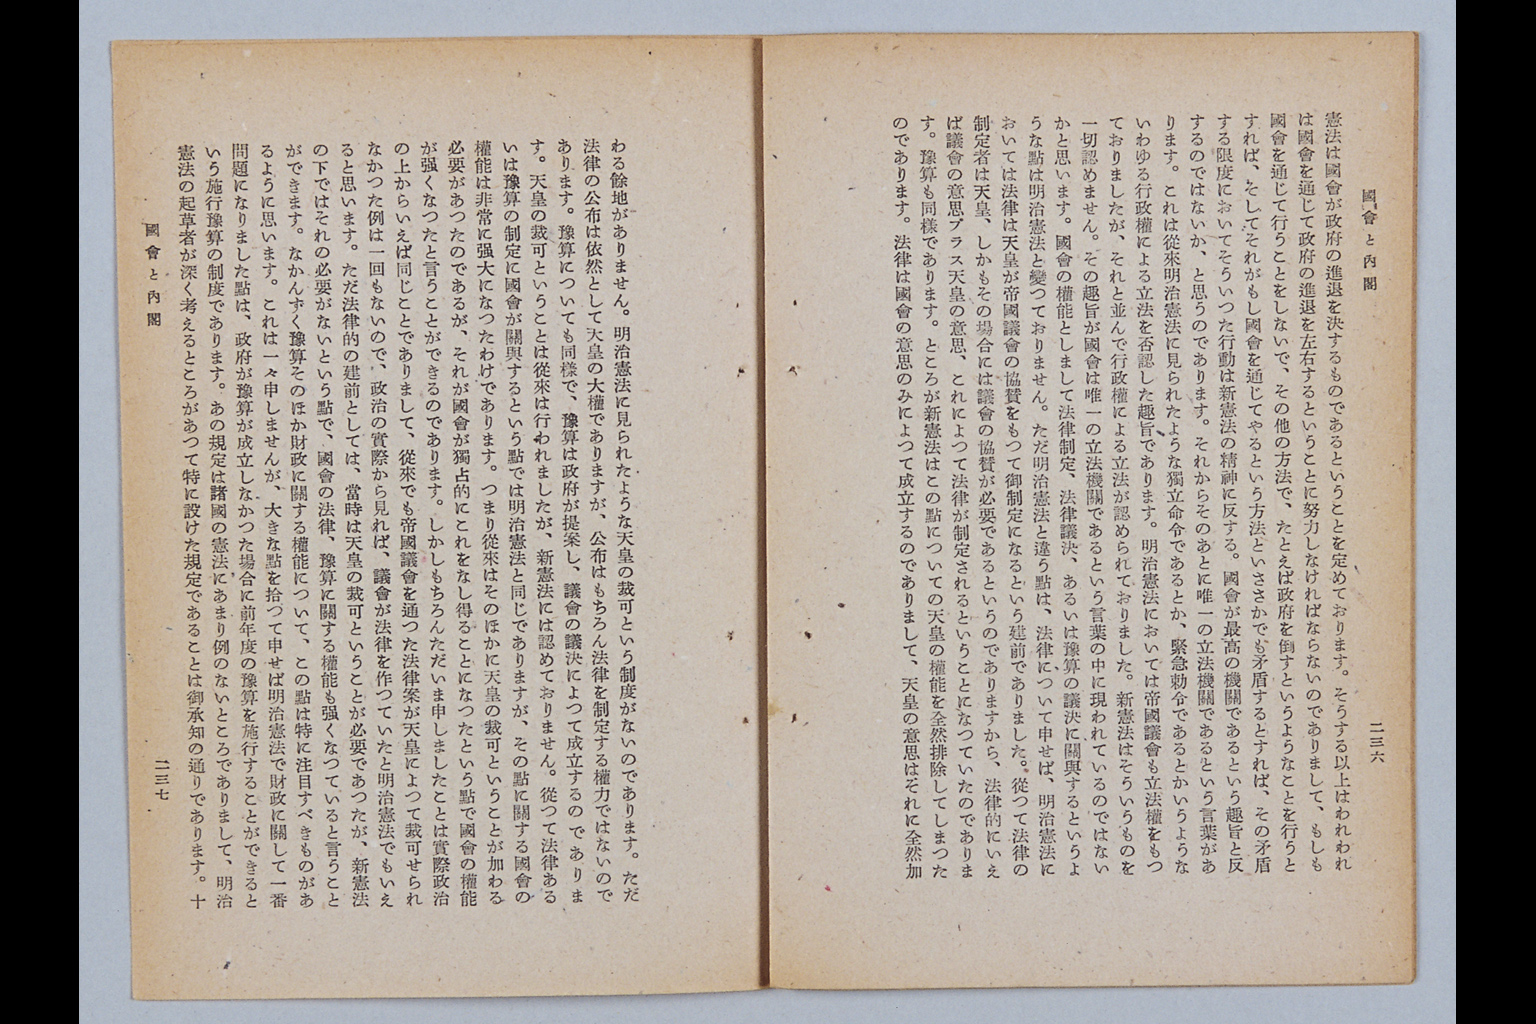 國會と內閣
二三六
憲法は國會が政府の進退を決するものであるということを定めております。そうする以上はわれわれ
は國會を通じて政府の進退を左右するということに努力しなければならないのでありまして、もしも
國會を通じて行うことをしないで、その他の方法で、たとえば政府を倒すというようなことを行うと
すれば、そしてそれがもし國會を通じてやるという方法といささかでも矛盾するとすれば、その矛盾
する限度においてそういつた行動は新憲法の精神に反する。國會が最高の機關であるという趣旨と反
するのではないか、と思うのであります。それからそのあとに唯一の立法機關であるという言葉があ
ります。これは從來明治憲法に見られたような獨立命令であるとか、緊急勅令であるとかいうような
いわゆる行政權による立法を否認した趣旨であります。明治憲法においては帝國議會も立法權をもつ
ておりましたが、それと並んで行政權による立法が認められておりました。新憲法はそういうものを
一切認めません。その趣旨が國會は唯一の立法機關であるという言葉の中に現われているのではない
かと思います。國會の權能としまして法律制定、法律議決、あるいは豫算の議決に關與するというよ
うな點は明治憲法と變つておりません。ただ明治憲法と違う點は、法律について申せば、明治憲法に
おいては法律は天皇が帝國議會の協賛をもつて御制定になるという建前でありました。從つて法律の
制定者は天皇、しかもその場合には議會の協賛が必要であるというのでありますから、法律的にいえ
ば議會の意思プラス天皇の意思、これによつて法律が制定されるということになつていたのでありま
す。豫算も同樣であります。ところが新憲法はこの點についての天皇の權能を全然排除してしまつた
のであります。法律は國會の意思のみによつて成立するのでありまして、天皇の意思はそれに全然加
わる餘地がありません。明治憲法に見られたような天皇の裁可という制度がないのであります。ただ
法律の公布は依然として天皇の大權でありますが、公布はもちろん法律を制定する權力ではないので
あります。豫算についても同樣で、豫算は政府が提案し、議會の議決によつて成立するのでありま
す。天皇の裁可ということは從來は行われましたが、新憲法には認めておりません。從つて法律ある
いは豫算の制定に國會が關與するという點では明治憲法と同じでありますが、その點に關する國會の
權能は非常に强大になつたわけであります。つまり從來はそのほかに天皇の裁可ということが加わる
必要があつたのであるが、それが國會が獨占的にこれをなし得ることになつたという點で國會の權能
が强くなつたと言うことができるのであります。しかしもちろんただいま申しましたことは實際政治
の上からいえば同じことでありまして、從來でも帝國議會を通つた法律案が天皇によつて裁可せられ
なかつた例は一回もないので、政治の實際から見れば、議會が法律を作つていたと明治憲法でもいえ
ると思います。ただ法律的の建前としては、當時は天皇の裁可ということが必要であつたが、新憲法
の下ではそれの必要がないという點で、國會の法律、豫算に關する權能も强くなつていると言うこと
ができます。なかんずく豫算そのほか財政に關する權能について、この點は特に注目すべきものがあ
るように思います。これは一々申しませんが、大きな點を拾つて申せば明治憲法で財政に關して一番
問題になりました點は、政府が豫算が成立しなかつた場合に前年度の豫算を施行することができると
いう施行豫算の制度であります。あの規定は諸國の憲法にあまり例のないところでありまして、明治
憲法の起草者が深く考えるところがあつて特に設けた規定であることは御承知の通りであります。十
國會と內閣
二三七